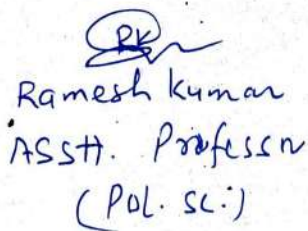 RK
Ramesh Kumar
Asstt. Professor
(Pol. Sc.)